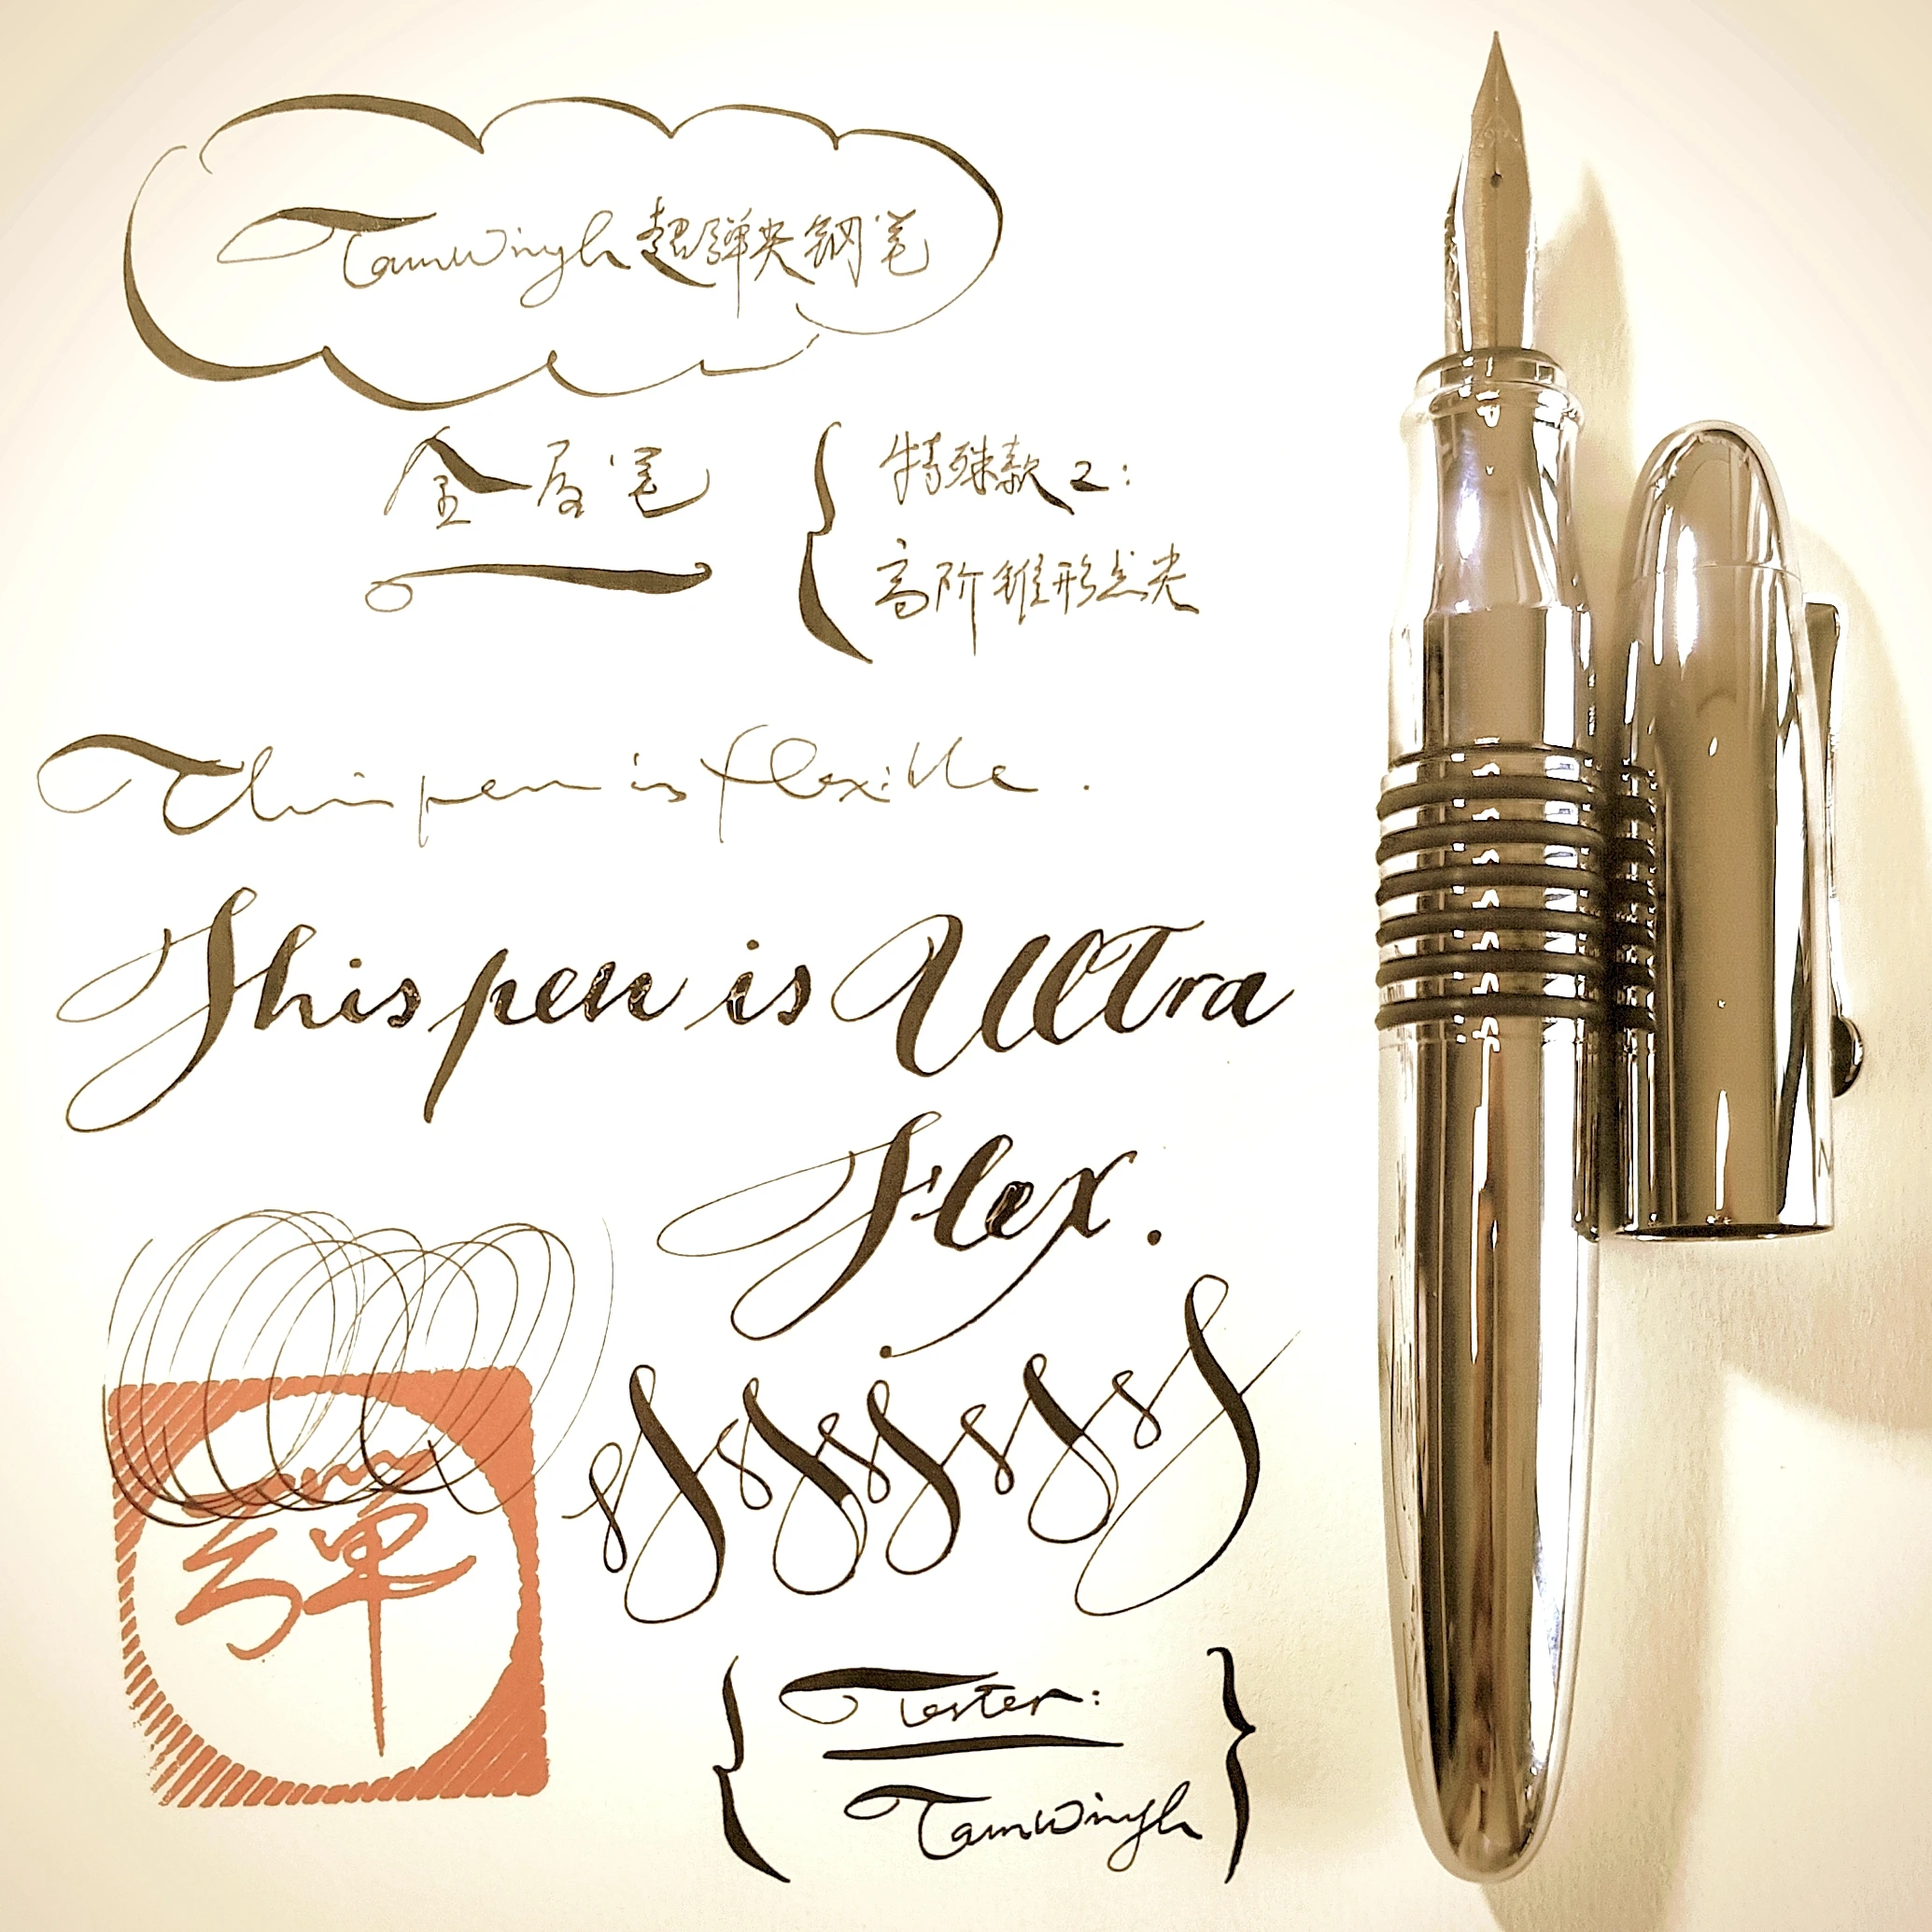 TamWingh超弹尖钢笔
金属笔
特殊款2:
高阶锥形点尖
This pen is flexible.
This pen is Ultra
Flex.
弹
Tester:
TamWingh